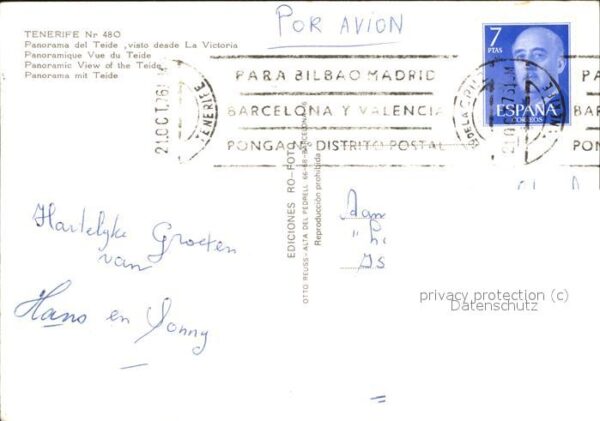 POR AVION
TENERIFE Nr 480
Panorama del Teide, visto desde La Victoria
Panoramique Vue du Teide
Panoramic View of the Teide
Panorama mit Teide
7
PTAS
ESPAÑA
CORREOS
PARA BILBAO MADRID
BARCELONA Y VALENCIA
PONGA Nº DISTRITO POSTAL
21.OCT.76
TENERIFE
EDICIONES RO-FOTO
OTTO REUSS - ALTA DEL PEDRELL 66-68 - BARCELONA-16
Reproducción prohibida
Hartelijke Groeten
van
Hans en Jonny
privacy protection (c)
Datenschutz